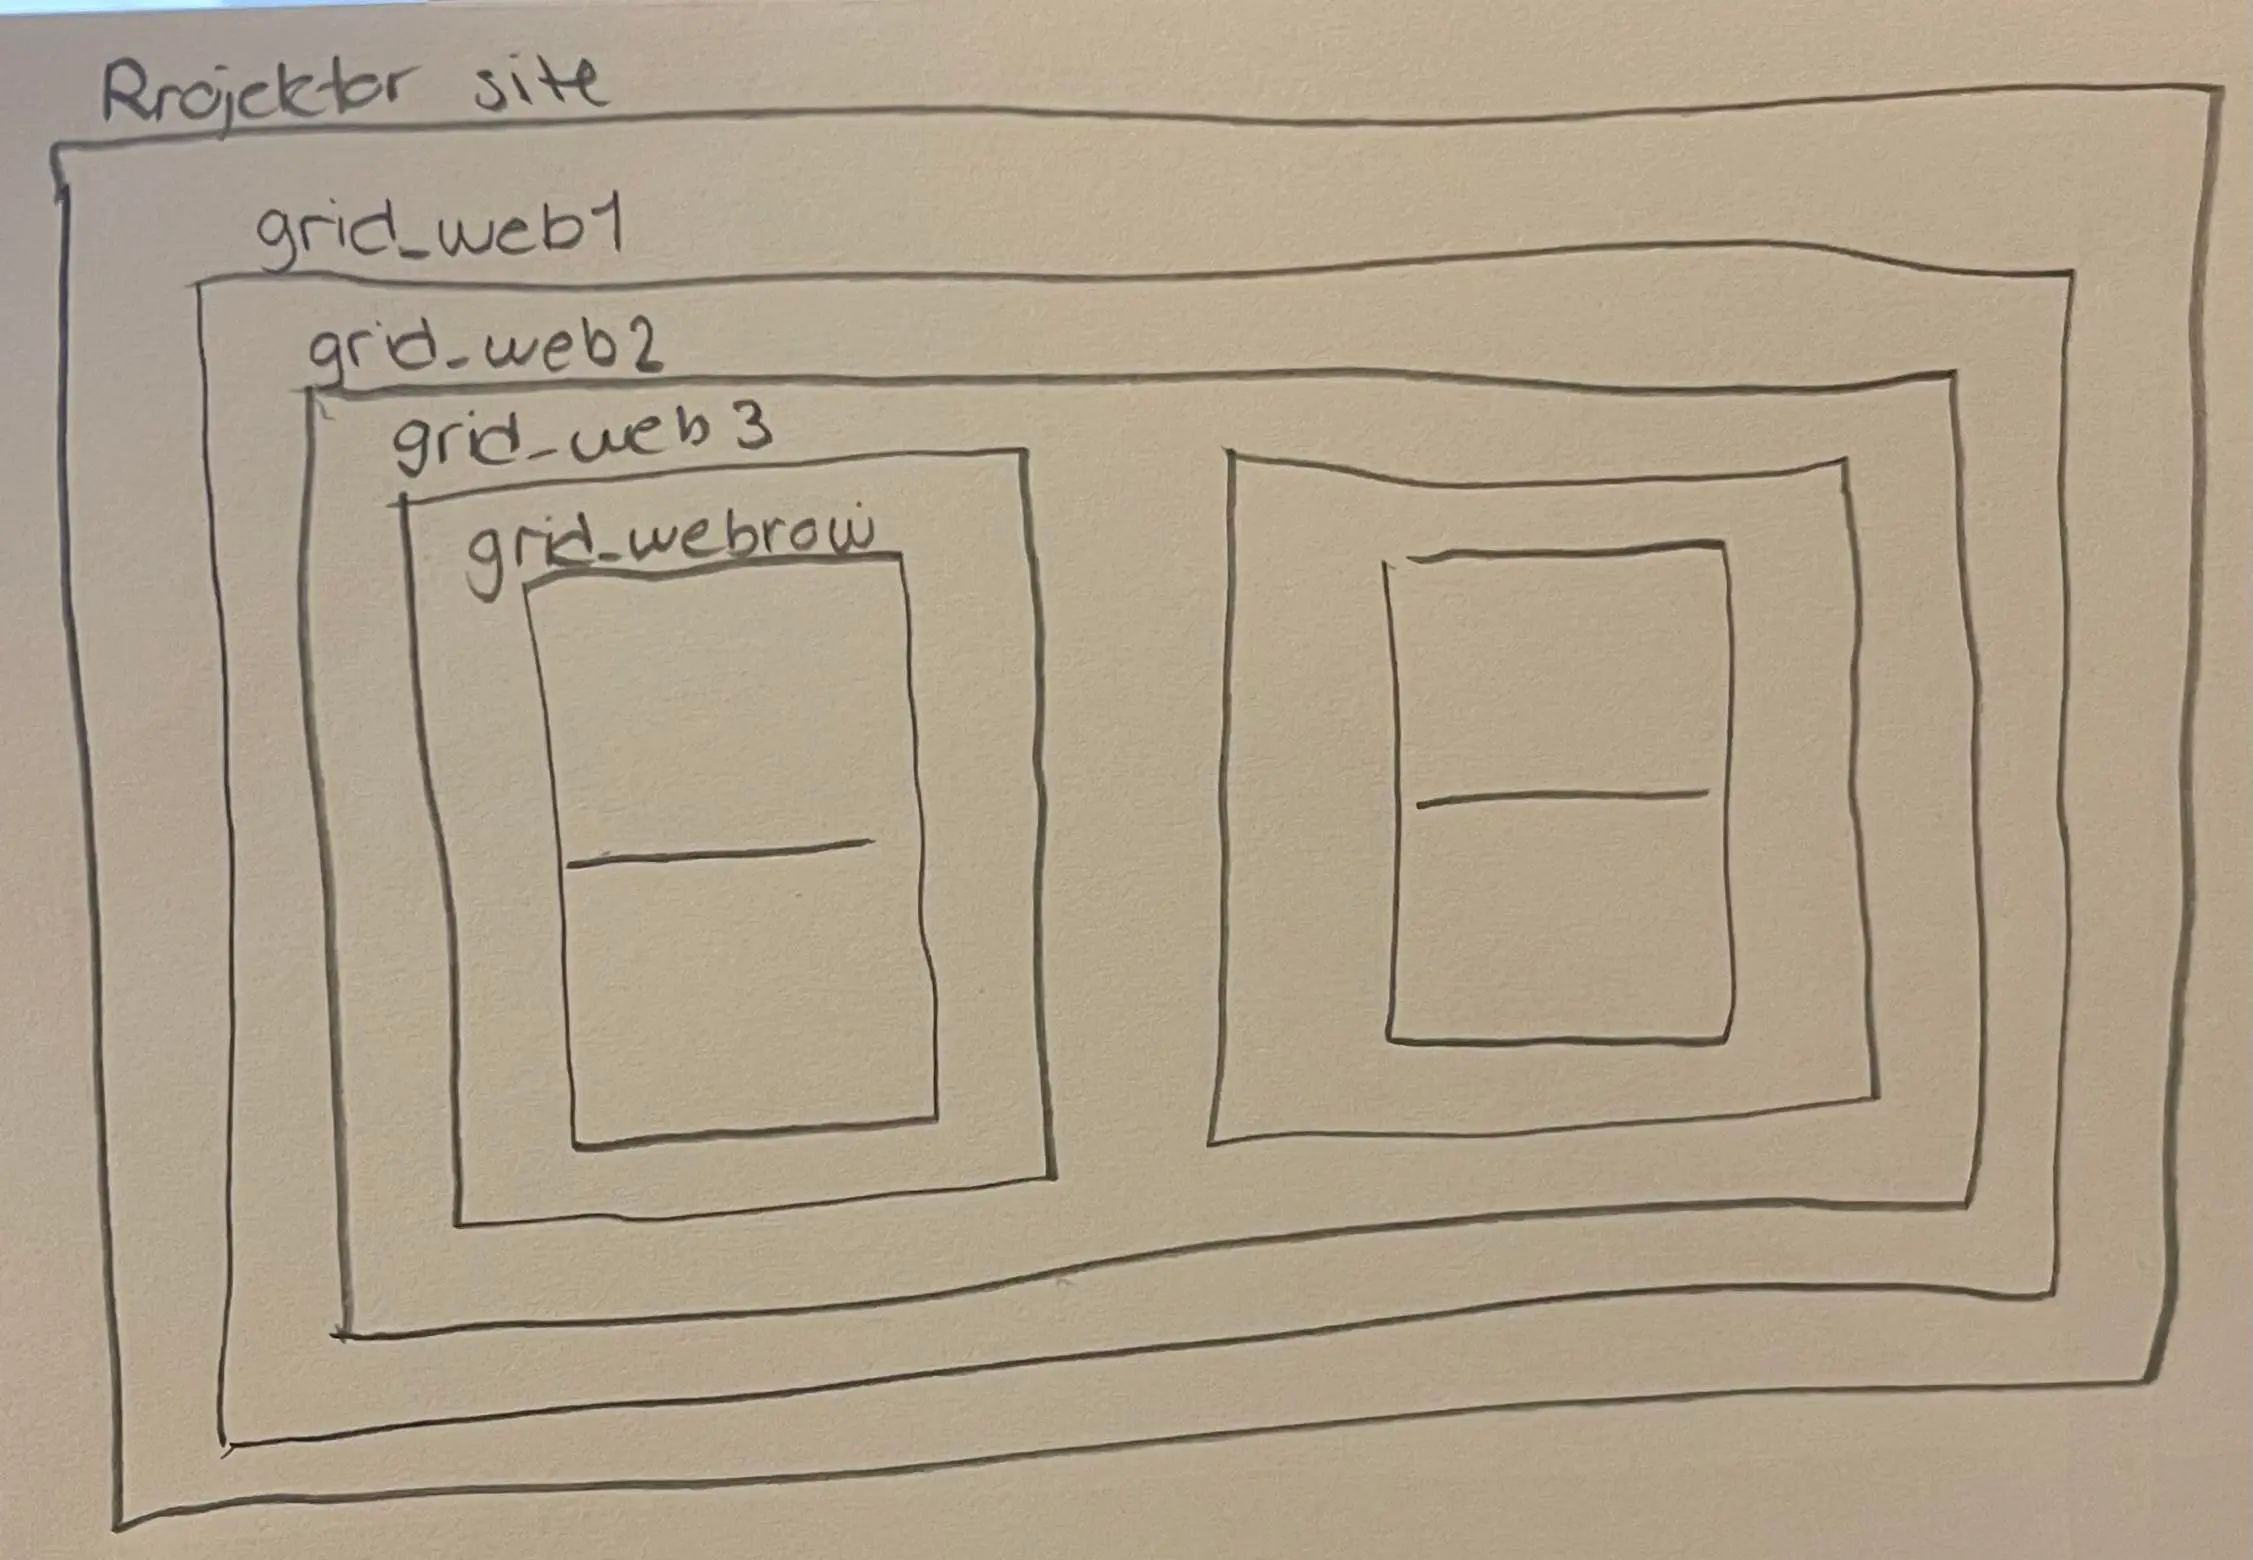 Projektor site
grid_web1
grid_web2
grid_web3
grid_webrow